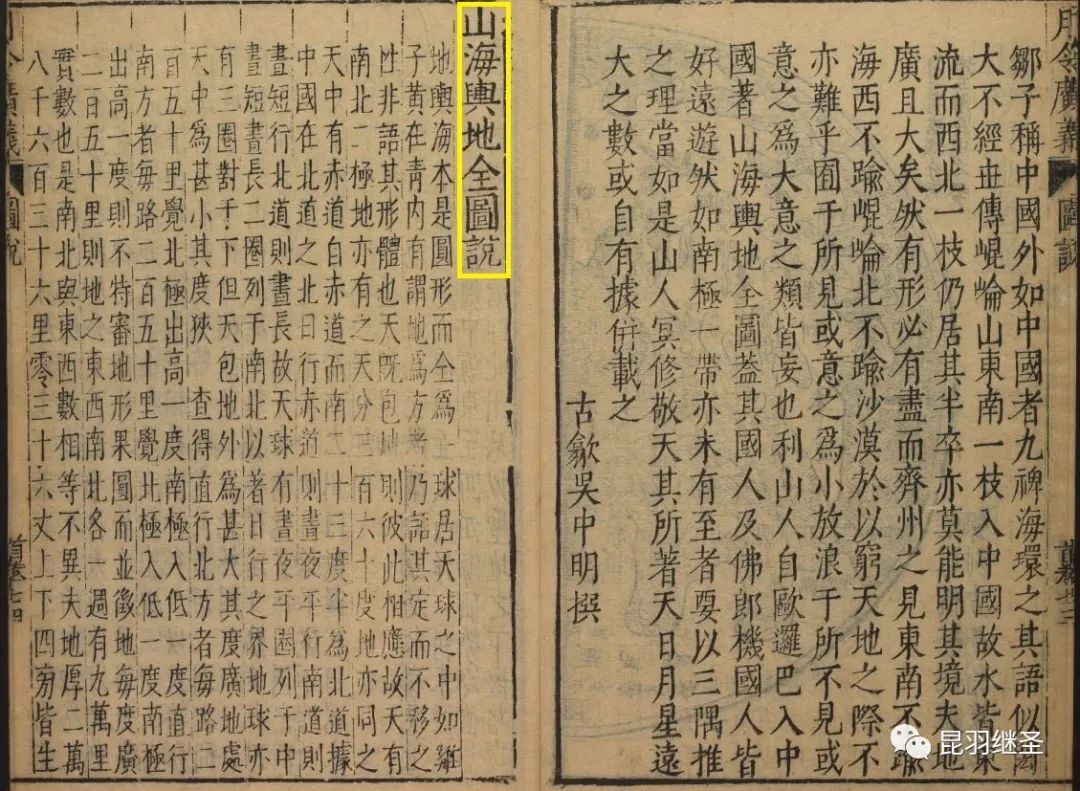 月令廣義
圖說
鄒子稱中國外如中國者九裨海環之其語似閎
大不經世傳崐崘山東南一枝入中國故水皆東
流而西北一枝仍居其半卒亦莫能明其境夫地
廣且大矣然有形必有盡而齊州之見東南不踰
海西不踰崐崘北不踰沙漠於以窮天地之際不
亦難乎囿于所見或意之爲小放浪于所不見或
意之爲大意之類皆妄也利山人自歐邏巴入中
國著山海輿地全圖蓋其國人及佛郎機國人皆
好遠遊然如南極一帶亦未有至者要以三隅推
之理當如是山人冥修敬天其所著天日月星遠
大之數或自有據併載之
古歙吳中明撰
山海輿地全圖說
地與海本是圓形而全爲一球居天球之中如雞
子黃在青内有謂地爲方者乃語其定而不移之
性非語其形體也天旣包地則彼此相應故天有
南北二極地亦有之天分三百六十度地亦同之
天中有赤道自赤道而南二十三度半爲北道據
中國在北道之北日行赤道則晝夜平行南道則
晝短行北道則晝長故天球有晝夜平圈列于中
晝短晝長二圈列于南北以著日行之界地球亦
有三圈對于下但天包地外爲甚大其度廣地處
天中爲甚小其度狹 查得直行北方者每路二
百五十里覺北極出高一度南極入低一度直行
南方者每路二百五十里覺北極入低一度南極
出高一度則不特審地形果圓而並徵地每度廣
二百五十里則地之東西南北各一週有九萬里
實數也是南北與東西數相等不異夫地厚二萬
八千六百三十六里零三十六丈上下四旁皆生
圖說
昆羽继圣